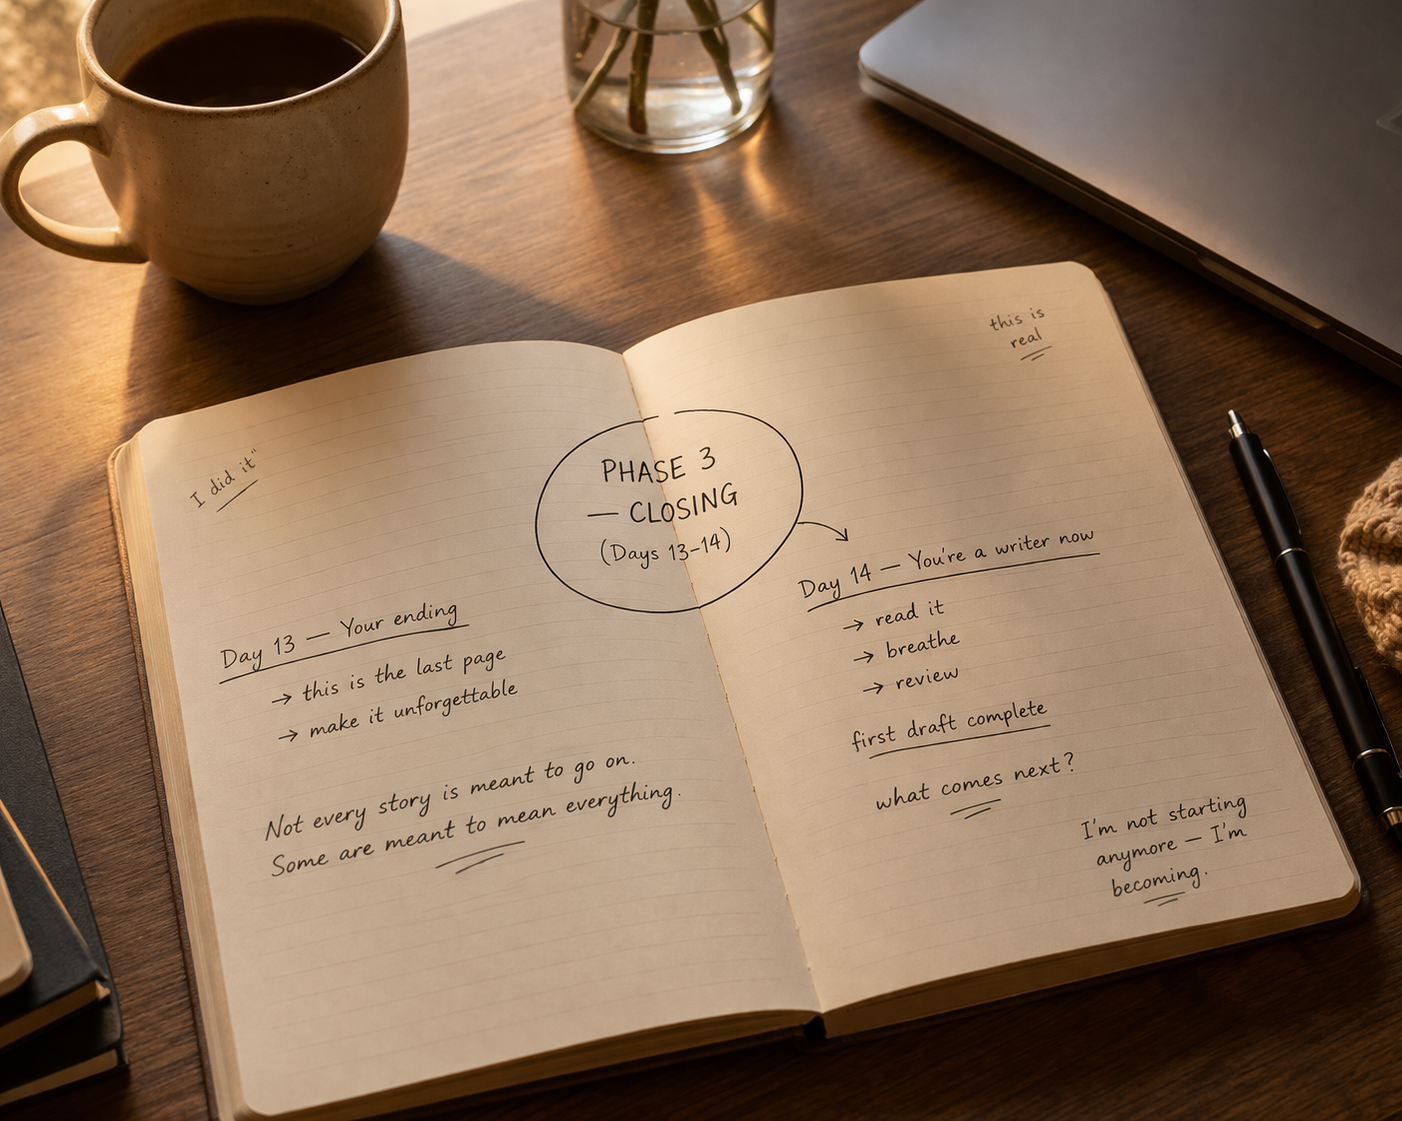 I did it"
PHASE 3
— CLOSING
(Days 13–14)
Day 13 — Your ending
→ this is the last page
→ make it unforgettable
Not every story is meant to go on.
Some are meant to mean everything.
this is
real
Day 14 — You're a writer now
→ read it
→ breathe
→ review
first draft complete
what comes next?
I'm not starting
anymore — I'm
becoming.